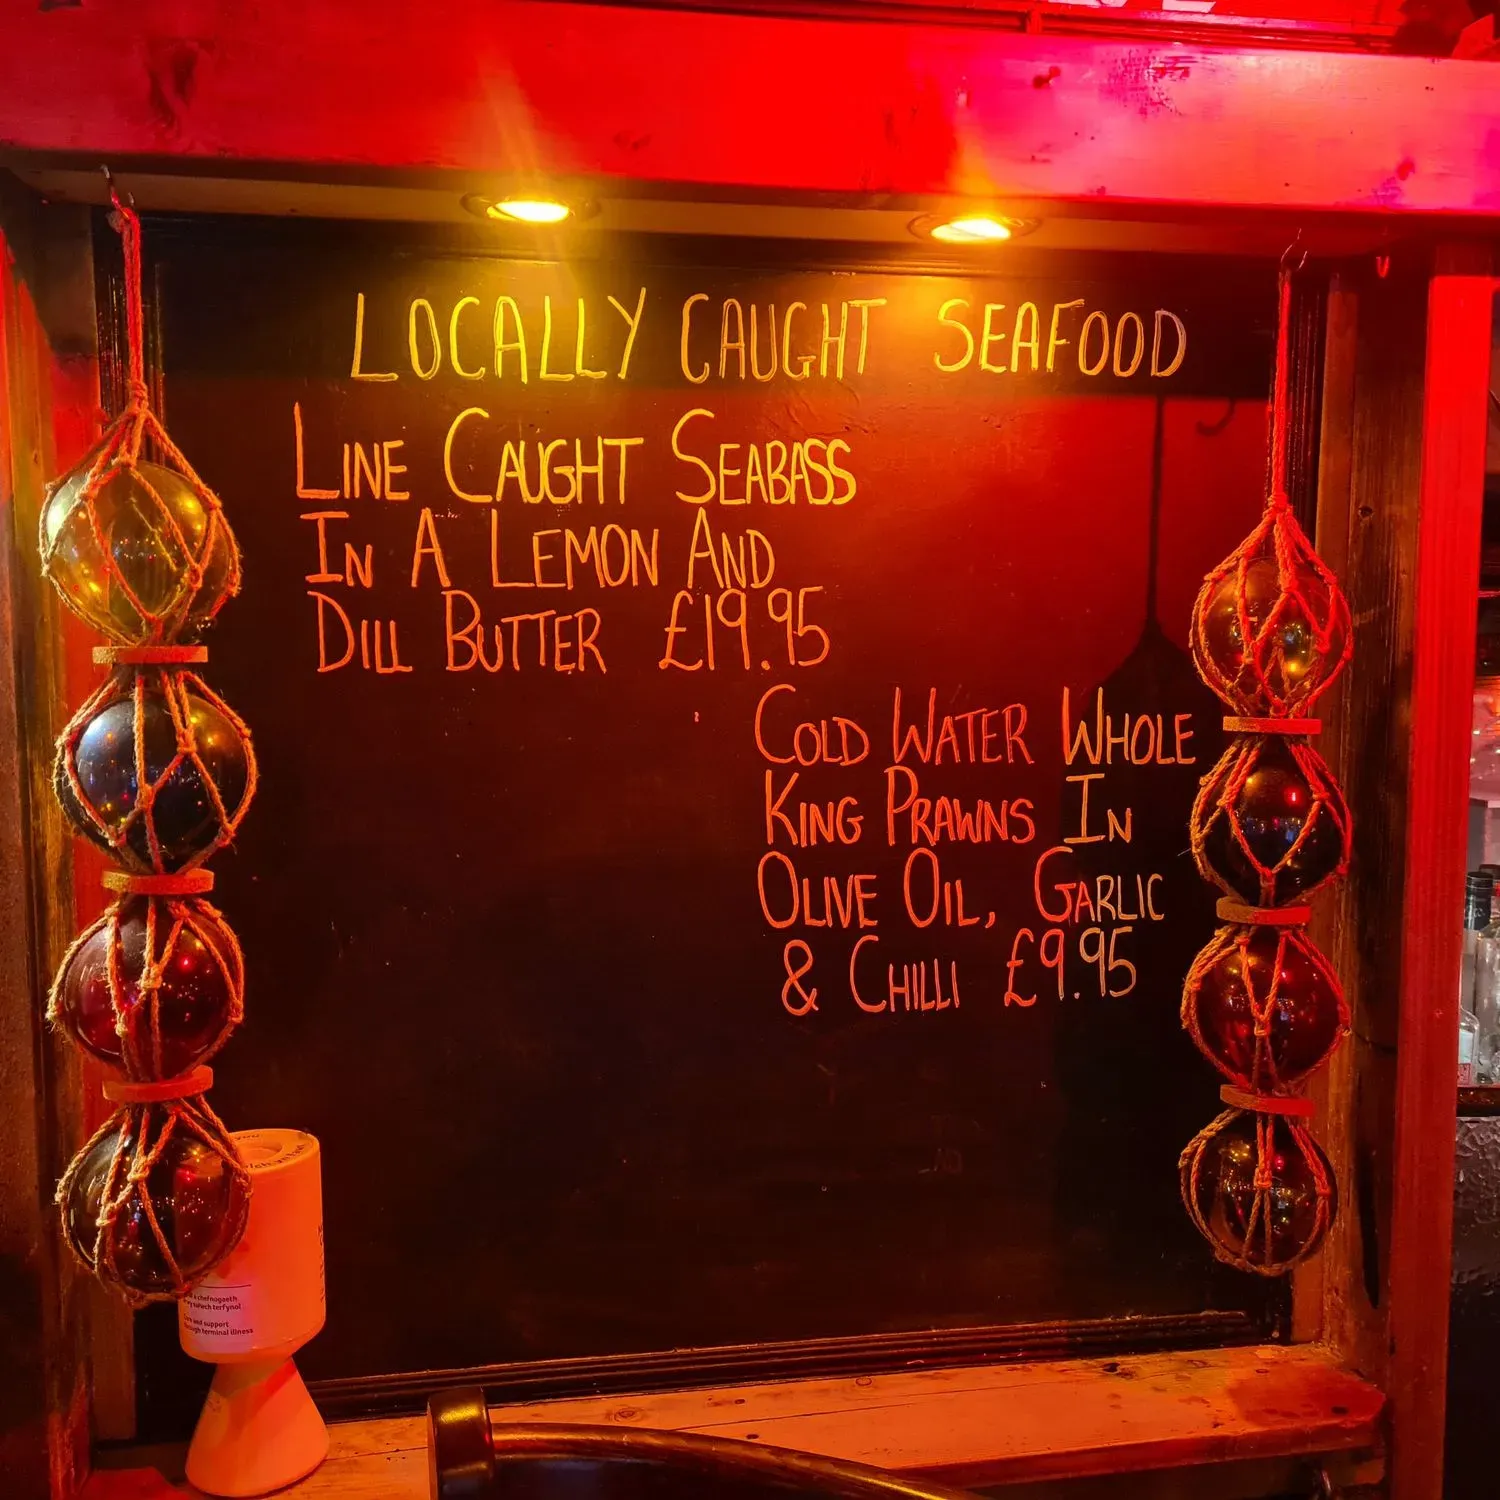 LOCALLY CAUGHT SEAFOOD
LINE CAUGHT SEABASS
IN A LEMON AND
DILL BUTTER £19.95
COLD WATER WHOLE
KING PRAWNS IN
OLIVE OIL, GARLIC
& CHILLI £9.95
chefnogaeth
salwch terfynol
Care and support
through terminal illness